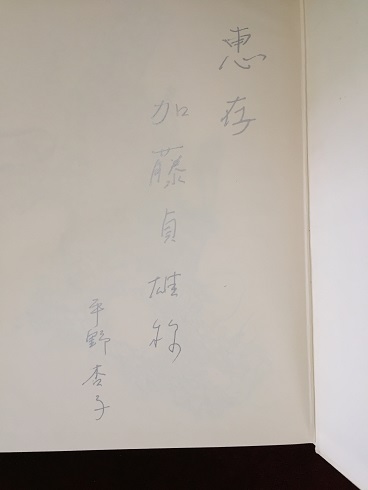 惠存
加藤貞雄様
平野杏子